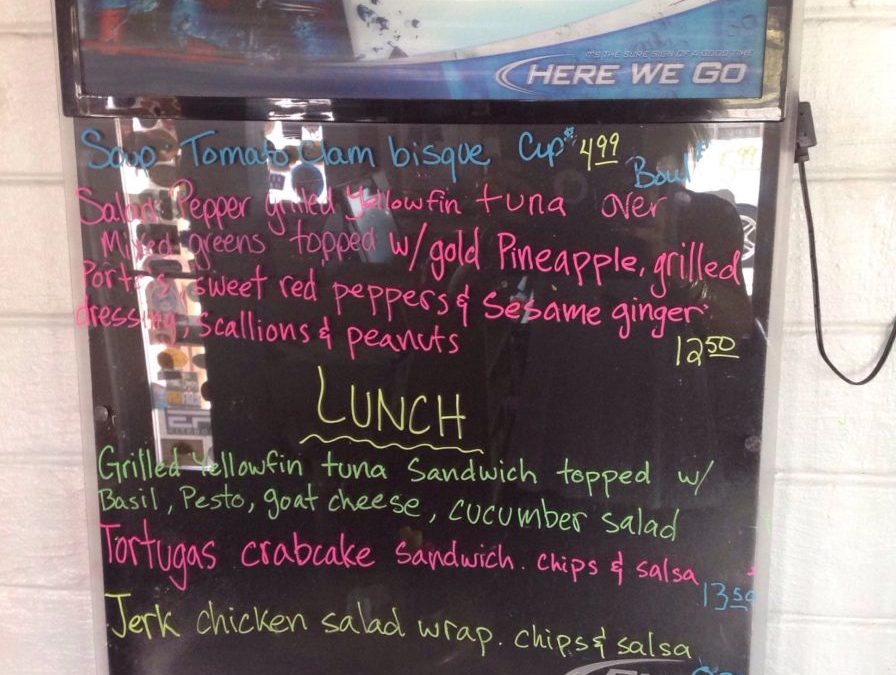 IT'S THE SURE SIGN OF A GOOD TIME
HERE WE GO
Soup Tomato Clam bisque Cup $4.99
Bowl $5.99
Salad Pepper grilled Yellowfin tuna over
Mixed greens topped w/ gold Pineapple, grilled
Porto's, sweet red peppers & Sesame ginger
dressing, Scallions & peanuts
12.50
LUNCH
Grilled Yellowfin tuna Sandwich topped w/
Basil, Pesto, goat cheese, cucumber salad
Tortugas crabcake Sandwich. chips & salsa
13.50
Jerk chicken salad wrap. chips & salsa